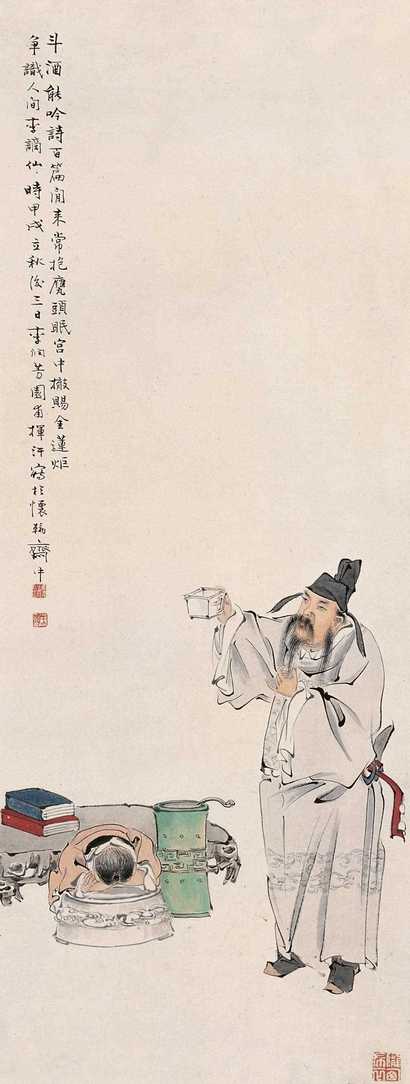 斗酒能吟詩百篇閒来常抱甕頭眠宮中撤賜金蓮炬
爭識人间李謫仙時甲戌立秋後三日李芳園甫揮汗寫於懷齋中